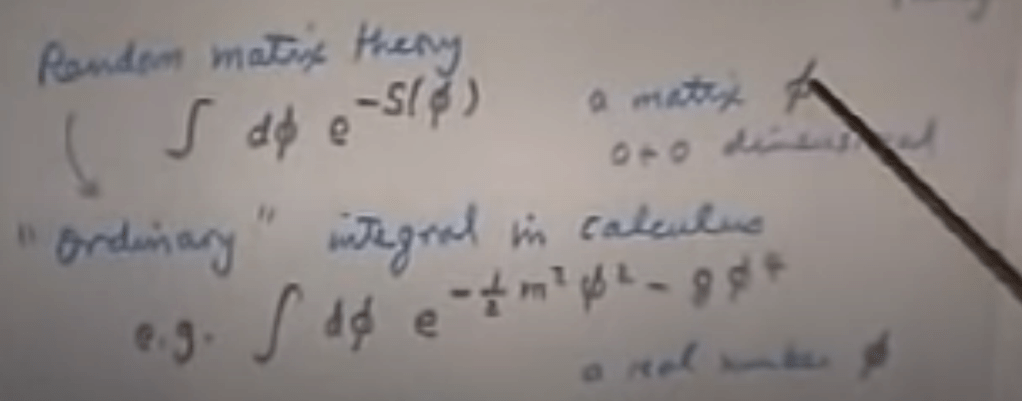 Random matrix theory
∫ dϕ e^{-S(ϕ)}
a matrix ϕ
0+0 dimensional
"ordinary" integral in calculus
e.g. ∫ dϕ e^{-½ m² ϕ² - g ϕ⁴}
a real number ϕ